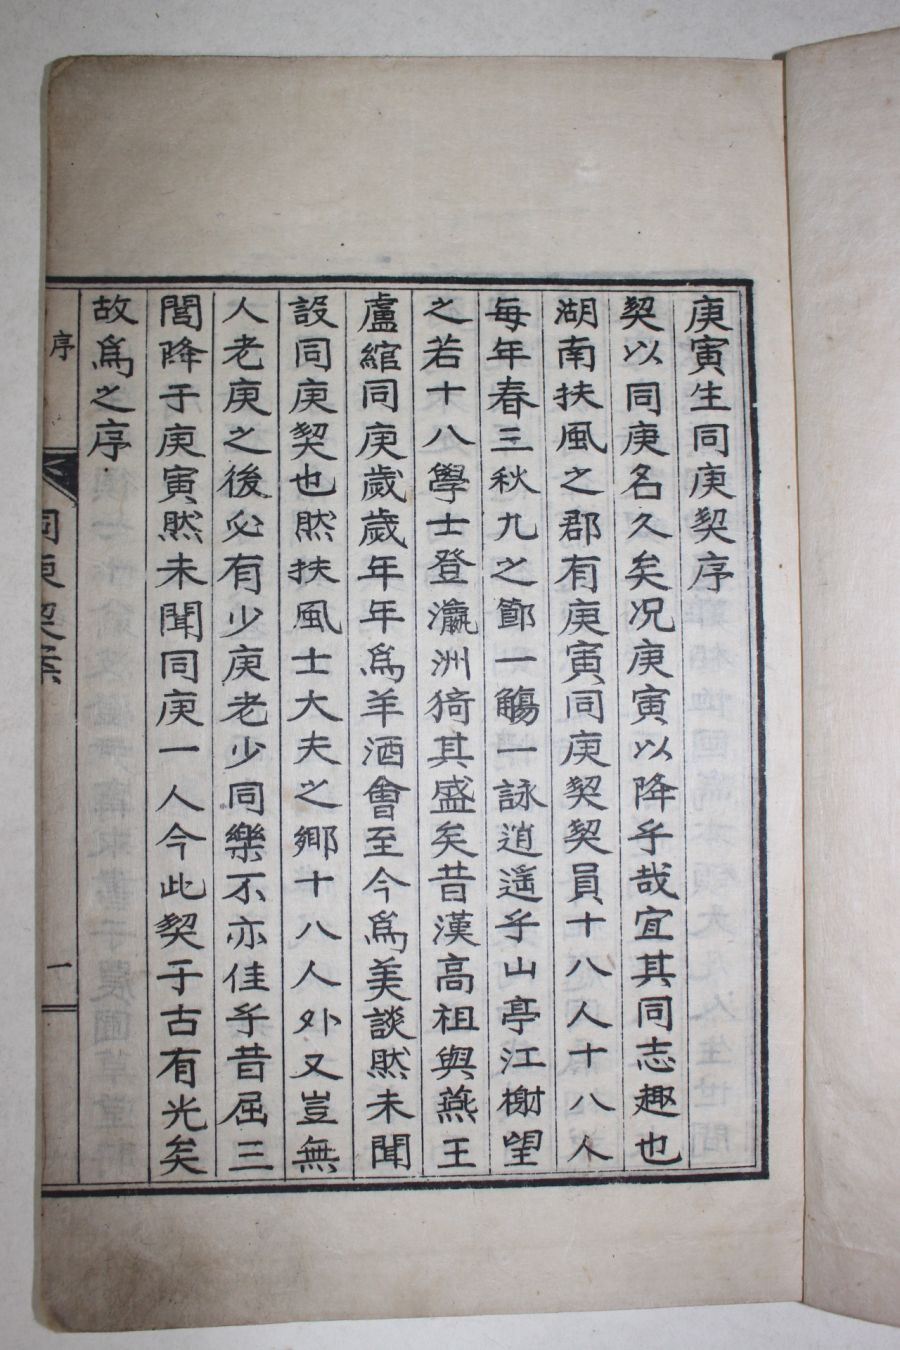 庚寅生同庚契序
契以同庚名久矣况庚寅以降乎哉宜其同志趣也
湖南扶風之郡有庚寅同庚契契員十八人十八人
每年春三秋九之節一觴一詠逍遙乎山亭江榭望
之若十八學士登瀛洲猗其盛矣昔漢高祖與燕王
盧綰同庚歲歲年年爲羊酒會至今爲美談然未聞
設同庚契也然扶風士大夫之鄉十八人外又豈無
人老庚之後必有少庚老少同樂不亦佳乎昔屈三
閭降于庚寅然未聞同庚一人今此契于古有光矣
故爲之序
同庚契案
序
一